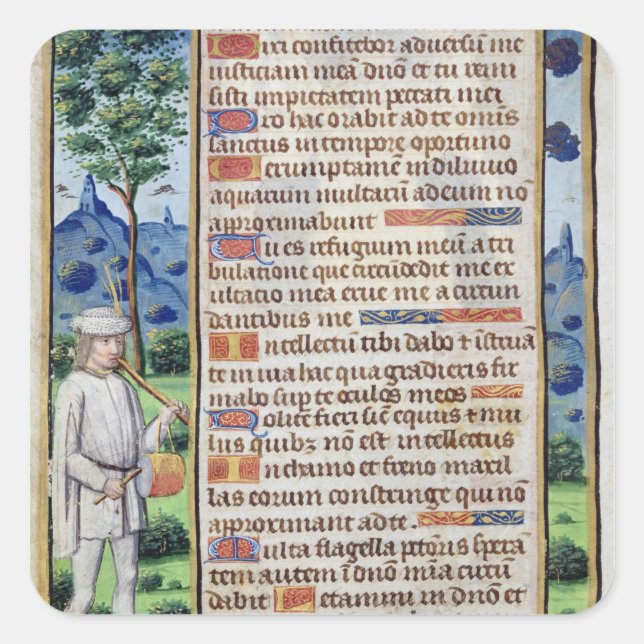 Dixi confitebor adversum me
iusticiam meā dn̄o et tu remi
sisti impietatem peccati mei
Pro hac orabit ad te omīs
sanctus in tempore oportuno
Verumptamē in diluvio
aquarum multarū ad eum nō
approximabunt
Tu es refugium meū a tri
bulatione que circūdedit me ex
ultatio mea erue me a circun
dantibus me
Intellectū tibi dabo ⁊ istruā
te in uia hac qua gradieris fir
mabo sup te oculos meos
Nolite fieri sic̄ equus ⁊ mu
lus quibꝫ nō est intellectus
In chamo et freno maxil
las eorum constringe qui nō
approximant ad te.
Multa flagella pctōris sperā
tem autem ī dn̄o mīa circū
dabit Letamini in dn̄o et